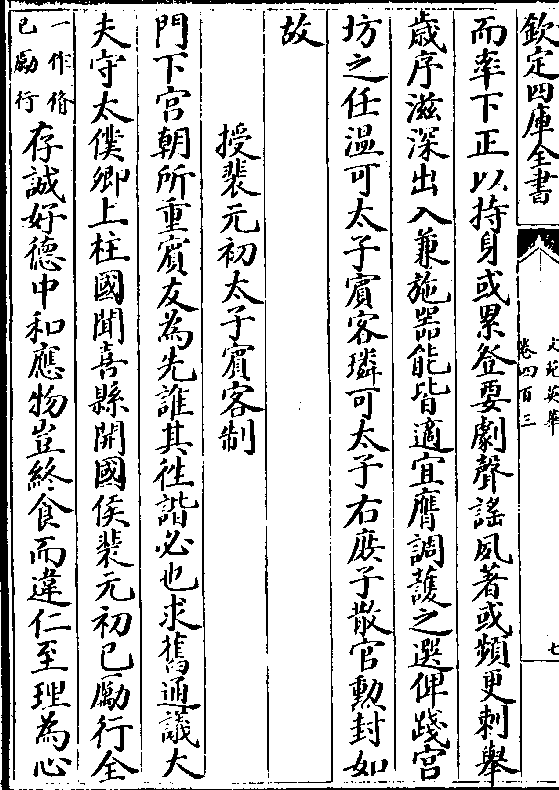 欽定四庫全書
文苑英華
卷四百三
七
而率下正以持身或累登要劇聲謠風著或頻更刺舉
歲序滋深出入兼施器能皆適宜膺調護之選俾踐宮
坊之任温可太子賓客璘可太子右庶子散官勲封如
故
授裴元初太子賓客制
門下宫朝所重賓友為先誰其往諧必也求舊通議大
夫守太僕卿上柱國聞喜縣開國侯裴元初已勵行全
一作脩
已勵行
存誠好德中和應物豈終食而違仁至理為心